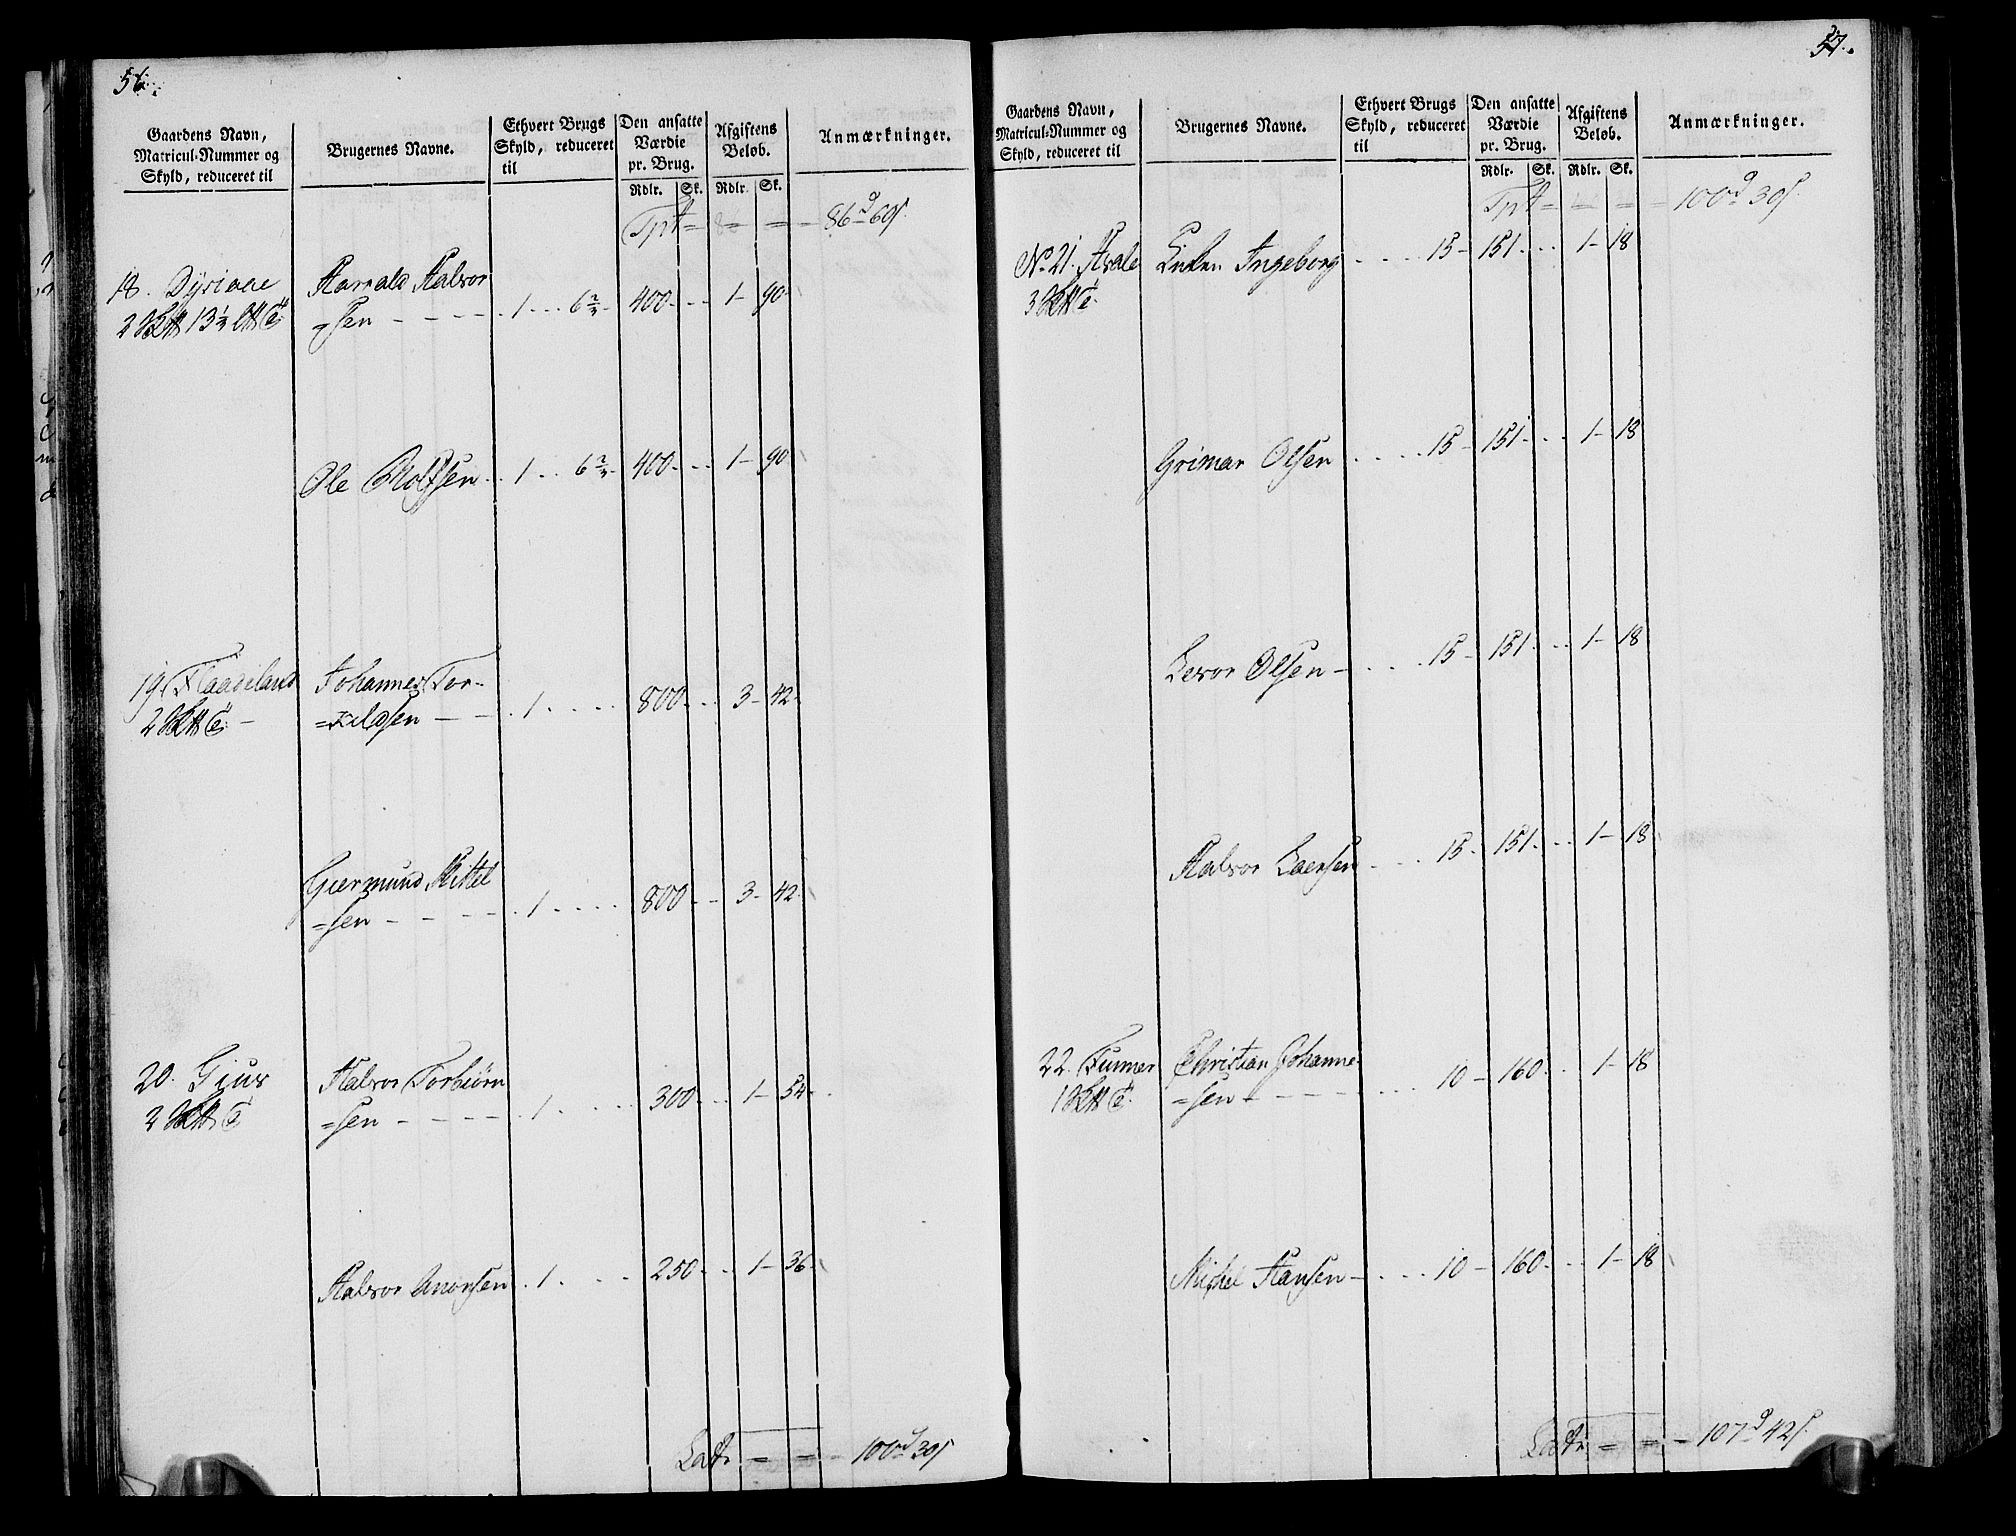 56.
Gaardens Navn,
Matricul-Nummer og
Skyld, reduceret til
Brugernes Navne.
Ethvert Brugs
Skyld, reduceret
til
Den ansatte
Værdie
pr. Brug.
Rdlr. Sk.
Afgiftens
Beløb.
Rdlr. Sk.
Anmærkninger.
Tpt = = = 86 d 60 s.
18. Dyriaae
Harrald Halvor
=sen - - - - 1 . . . 6 2/3 - 400 - . . 1 - 90 -
Ole Rolfsen . . 1 . . 6 2/3 - 400 - . . 1 - 90
19. Flaadeland
Johannes Tor-
=kildsen - - . 1 . . . . 800 - . . 3 - 42 -
Giermund Kittel
=sen - - - - . 1 . . . . 800 - - 3 - 42 -
20. Gius
Halvor Torbiørn
=sen - - - - 1 . . . . 300 - . . 1 - 54 -
Halvor Anorsen . 1 . . . . 250 - . . 1 - 36 -
Latr = = - 100 d 30 s
57.
Gaardens Navn,
Matricul-Nummer og
Skyld, reduceret til
Brugernes Navne.
Ethvert Brugs
Skyld, reduceret
til
Den ansatte
Værdie
pr. Brug.
Rdlr. Sk.
Afgiftens
Beløb.
Rdlr. Sk.
Anmærkninger.
Tpt = = = = 100 d 30 s.
No 21.
Enken Ingeborg . . . . 15 - 151 . . . 1 - 18
Grimar Olsen . . . . 15 - 151 - . . 1 - 18
Levor Olsen - . . . 15 - 151 - . . 1 - 18
Halvor Laersen . . . 15 - 151 - . . 1 - 18
22.
Christian Johanne
=sen - - - - . . . 10 - 160 - . . 1 - 18
Michel Hansen - . . . 10 - 160 - . . 1 - 18
Latr = = - 107 d 42 s.